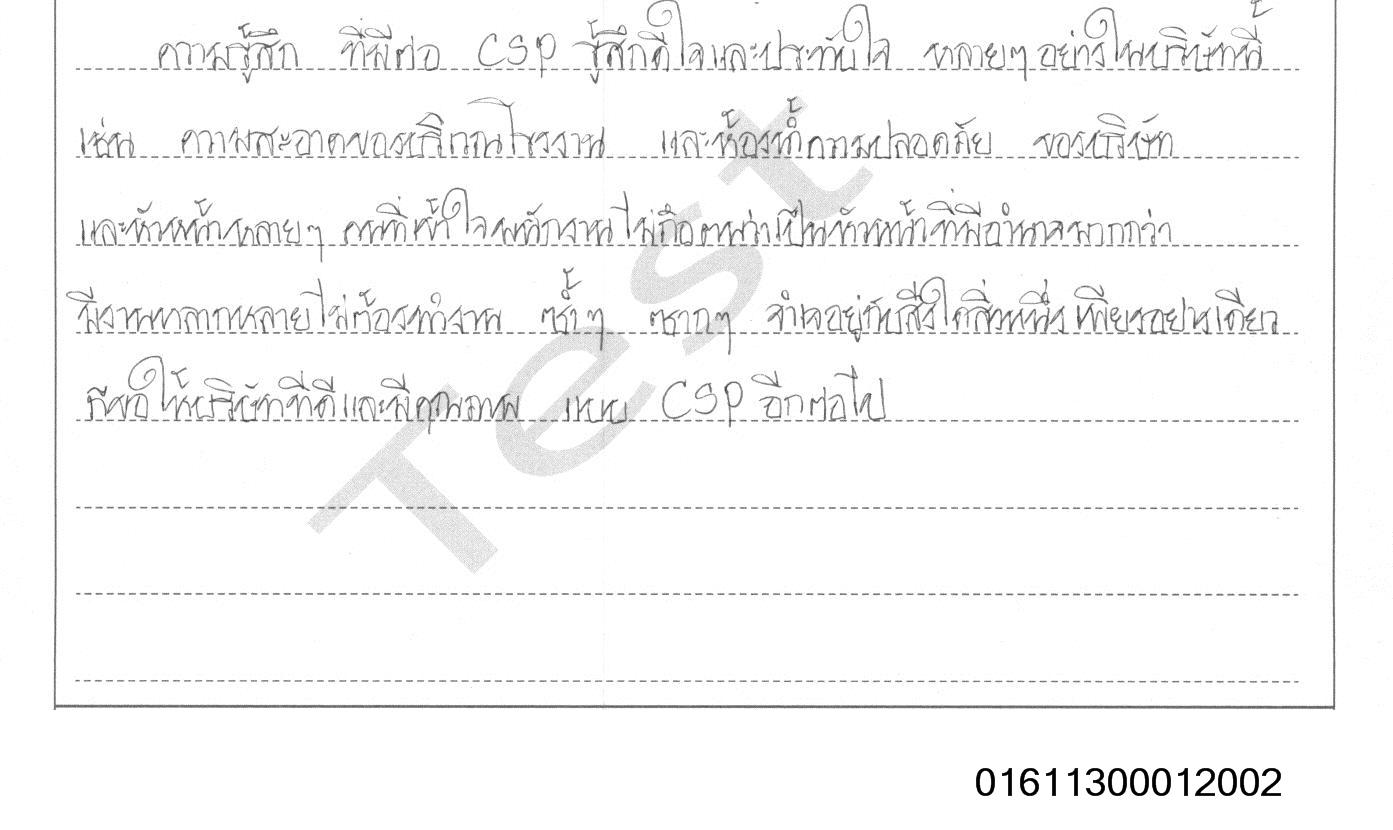 ความรู้สึก ที่มีต่อ CSP รู้สึกดีใจและประทับใจ หลายๆอย่างในบริษัทนี้
เช่น ความสะอาดของบริเวณโรงงาน และห้องน้ำความปลอดภัย ของบริษัท
และหัวหน้าหลายๆ คนที่เข้าใจพนักงานไม่ถือตนว่าเป็นหัวหน้าที่มีอำนาจมากกว่า
มีงานหลากหลายไม่ต้องทำงาน ซ้ำๆ ซากๆ จำเจอยู่กับสิ่งใดสิ่งหนึ่งเพียงอย่างเดียว
ก็ขอให้บริษัทที่ดีและมีคุณภาพ แบบ CSP อีกต่อไป
Test
01611300012002